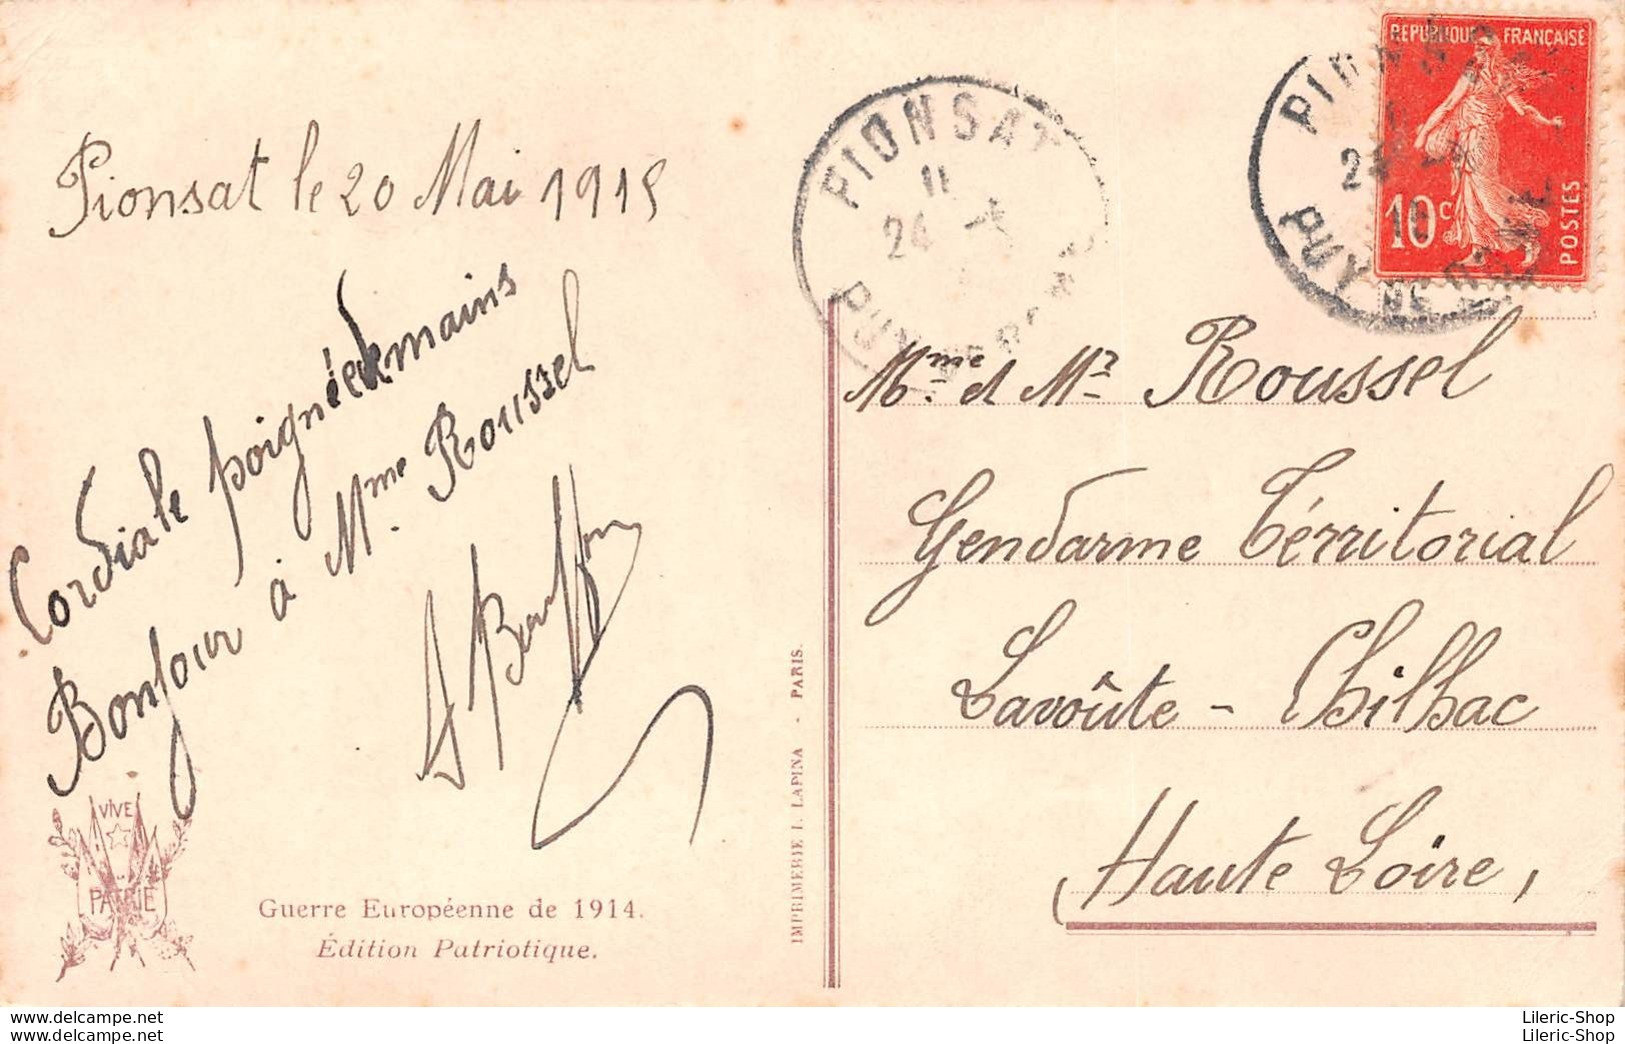 Pionsat le 20 Mai 1915
Cordiale poignée de mains
Bonjour à Mme Roussel
VIVE
PATRIE
Guerre Européenne de 1914.
Édition Patriotique.
IMPRIMERIE I. LAPINA - PARIS.
PIONSAT
11
24 -
PUY DE DOME
REPUBLIQUE FRANÇAISE
10c
POSTES
PIONSAT
24
PUY DE DOME
Mme et Mr Roussel
Gendarme Térritorial
Lavoûte - Chilhac
Haute Loire,
Lileric-Shop
Lileric-Shop
Lileric-Shop
Lileric-Shop